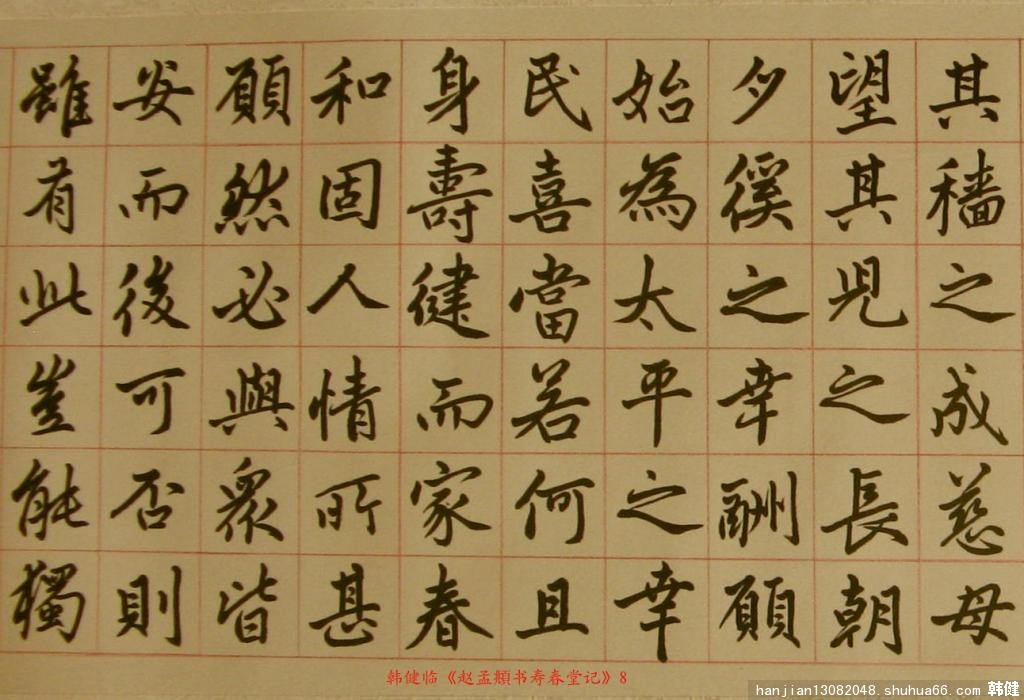 其穡之成慈母
望其兒之長朝
夕徯之幸酬願
始為太平之幸
民喜當若何且
身壽健而家春
和固人情所甚
願然必與眾皆
安而後可否則
雖有此豈能獨
韩健临《赵孟頫书寿春堂记》8
hanjian13082048.shuhua66.com 韩健